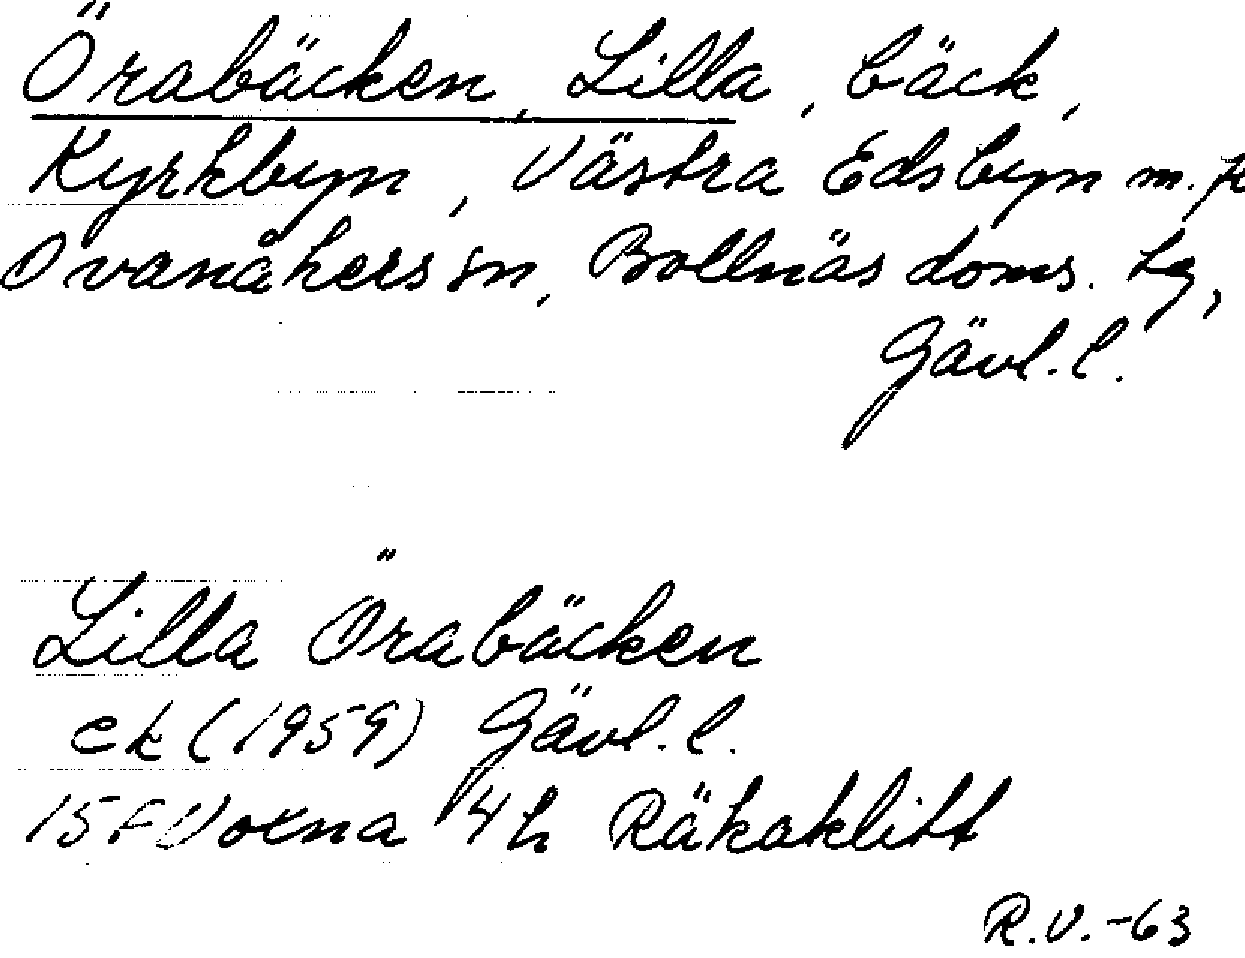 Örabäcken, Lilla, bäck,
Kyrkbyn, Västra Edsbyn m.fl
Ovanåkers sn, Bollnäs doms. lg,
Gävl.l.
Lilla Örabäcken
ek (1959) Gävl.l.
15F Voxna 4h Räkaklitt
R.V.-63